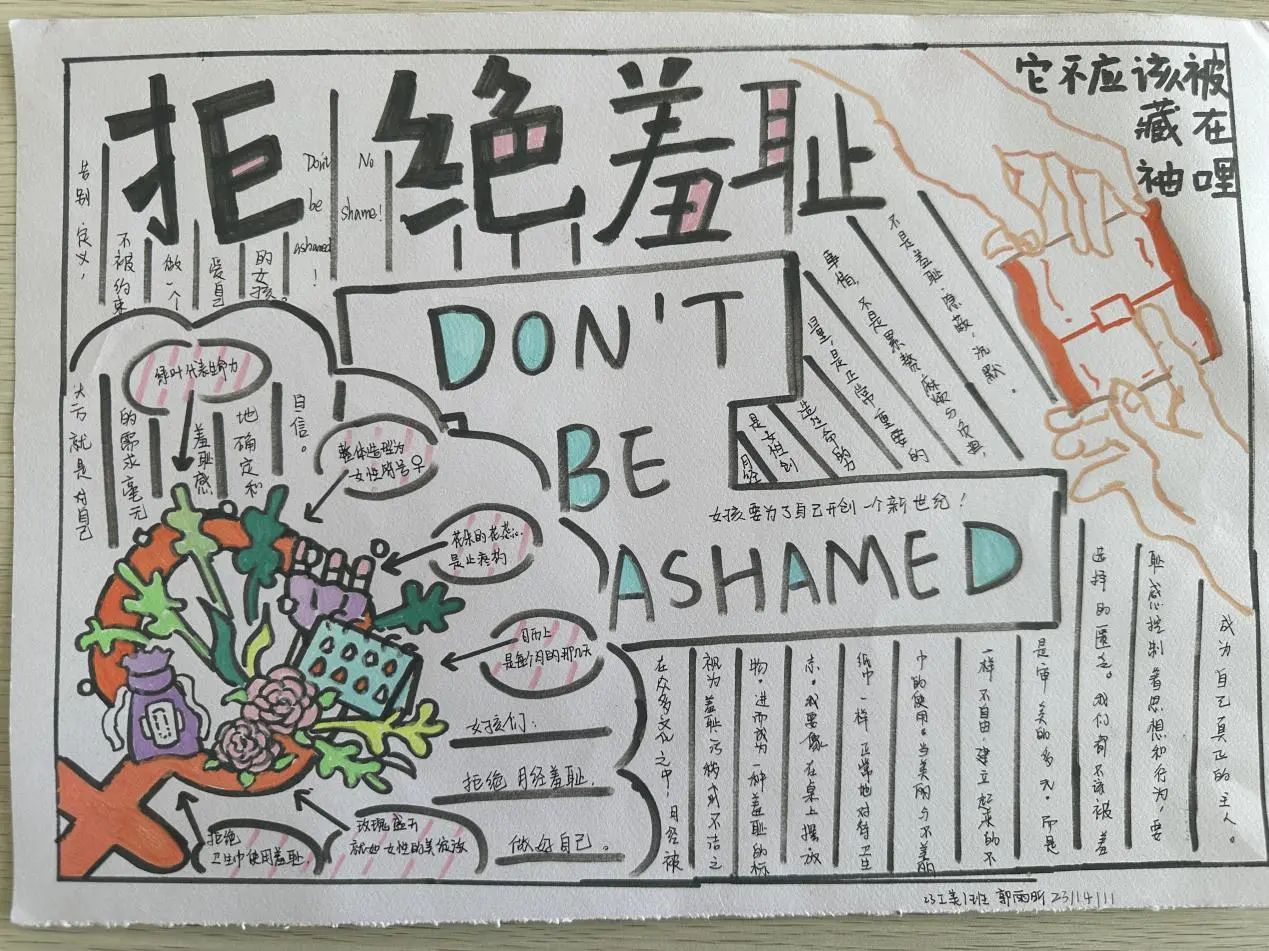 拒绝羞耻
它不应该被
藏在
袖哩
Don't
be
ashamed!
No
shame!
告别定义,
不被约束
做一个
爱自己
的女孩。
DON'T
BE
ASHAMED
女孩要为了自己开创一个新世纪!
月经
是女性创
造生命的力
量,是正常重要的
事情,不是累赘麻烦与负担,
不是羞耻、隐蔽,沉默。
绿叶代表生命力
大方就是对自己
的需求毫无
羞耻感
地确定和
自信。
整体造型为
女性符号♀
花朵的花态心
是止疼药
日历上
是每个月的那几天
女孩们:
拒绝月经羞耻,
做好自己。
拒绝
卫生巾使用羞耻.
玫瑰盛开
就如女性的美绽放
在众多文化之中,月经被
视为羞耻、污秽、肮不洁之
物。进而成为一种羞耻的标
示。我要像在桌上摆放
纸巾一样正常地对待卫
生巾的使用。当美丽与不美丽
一样不自由,建立起来的不
是审美的多元,而是
选择的匮乏。我们都不该被羞
耻感控制着思想和行为,要
成为自己真正的主人。
23工美1班 郭雨昕 23/4/11